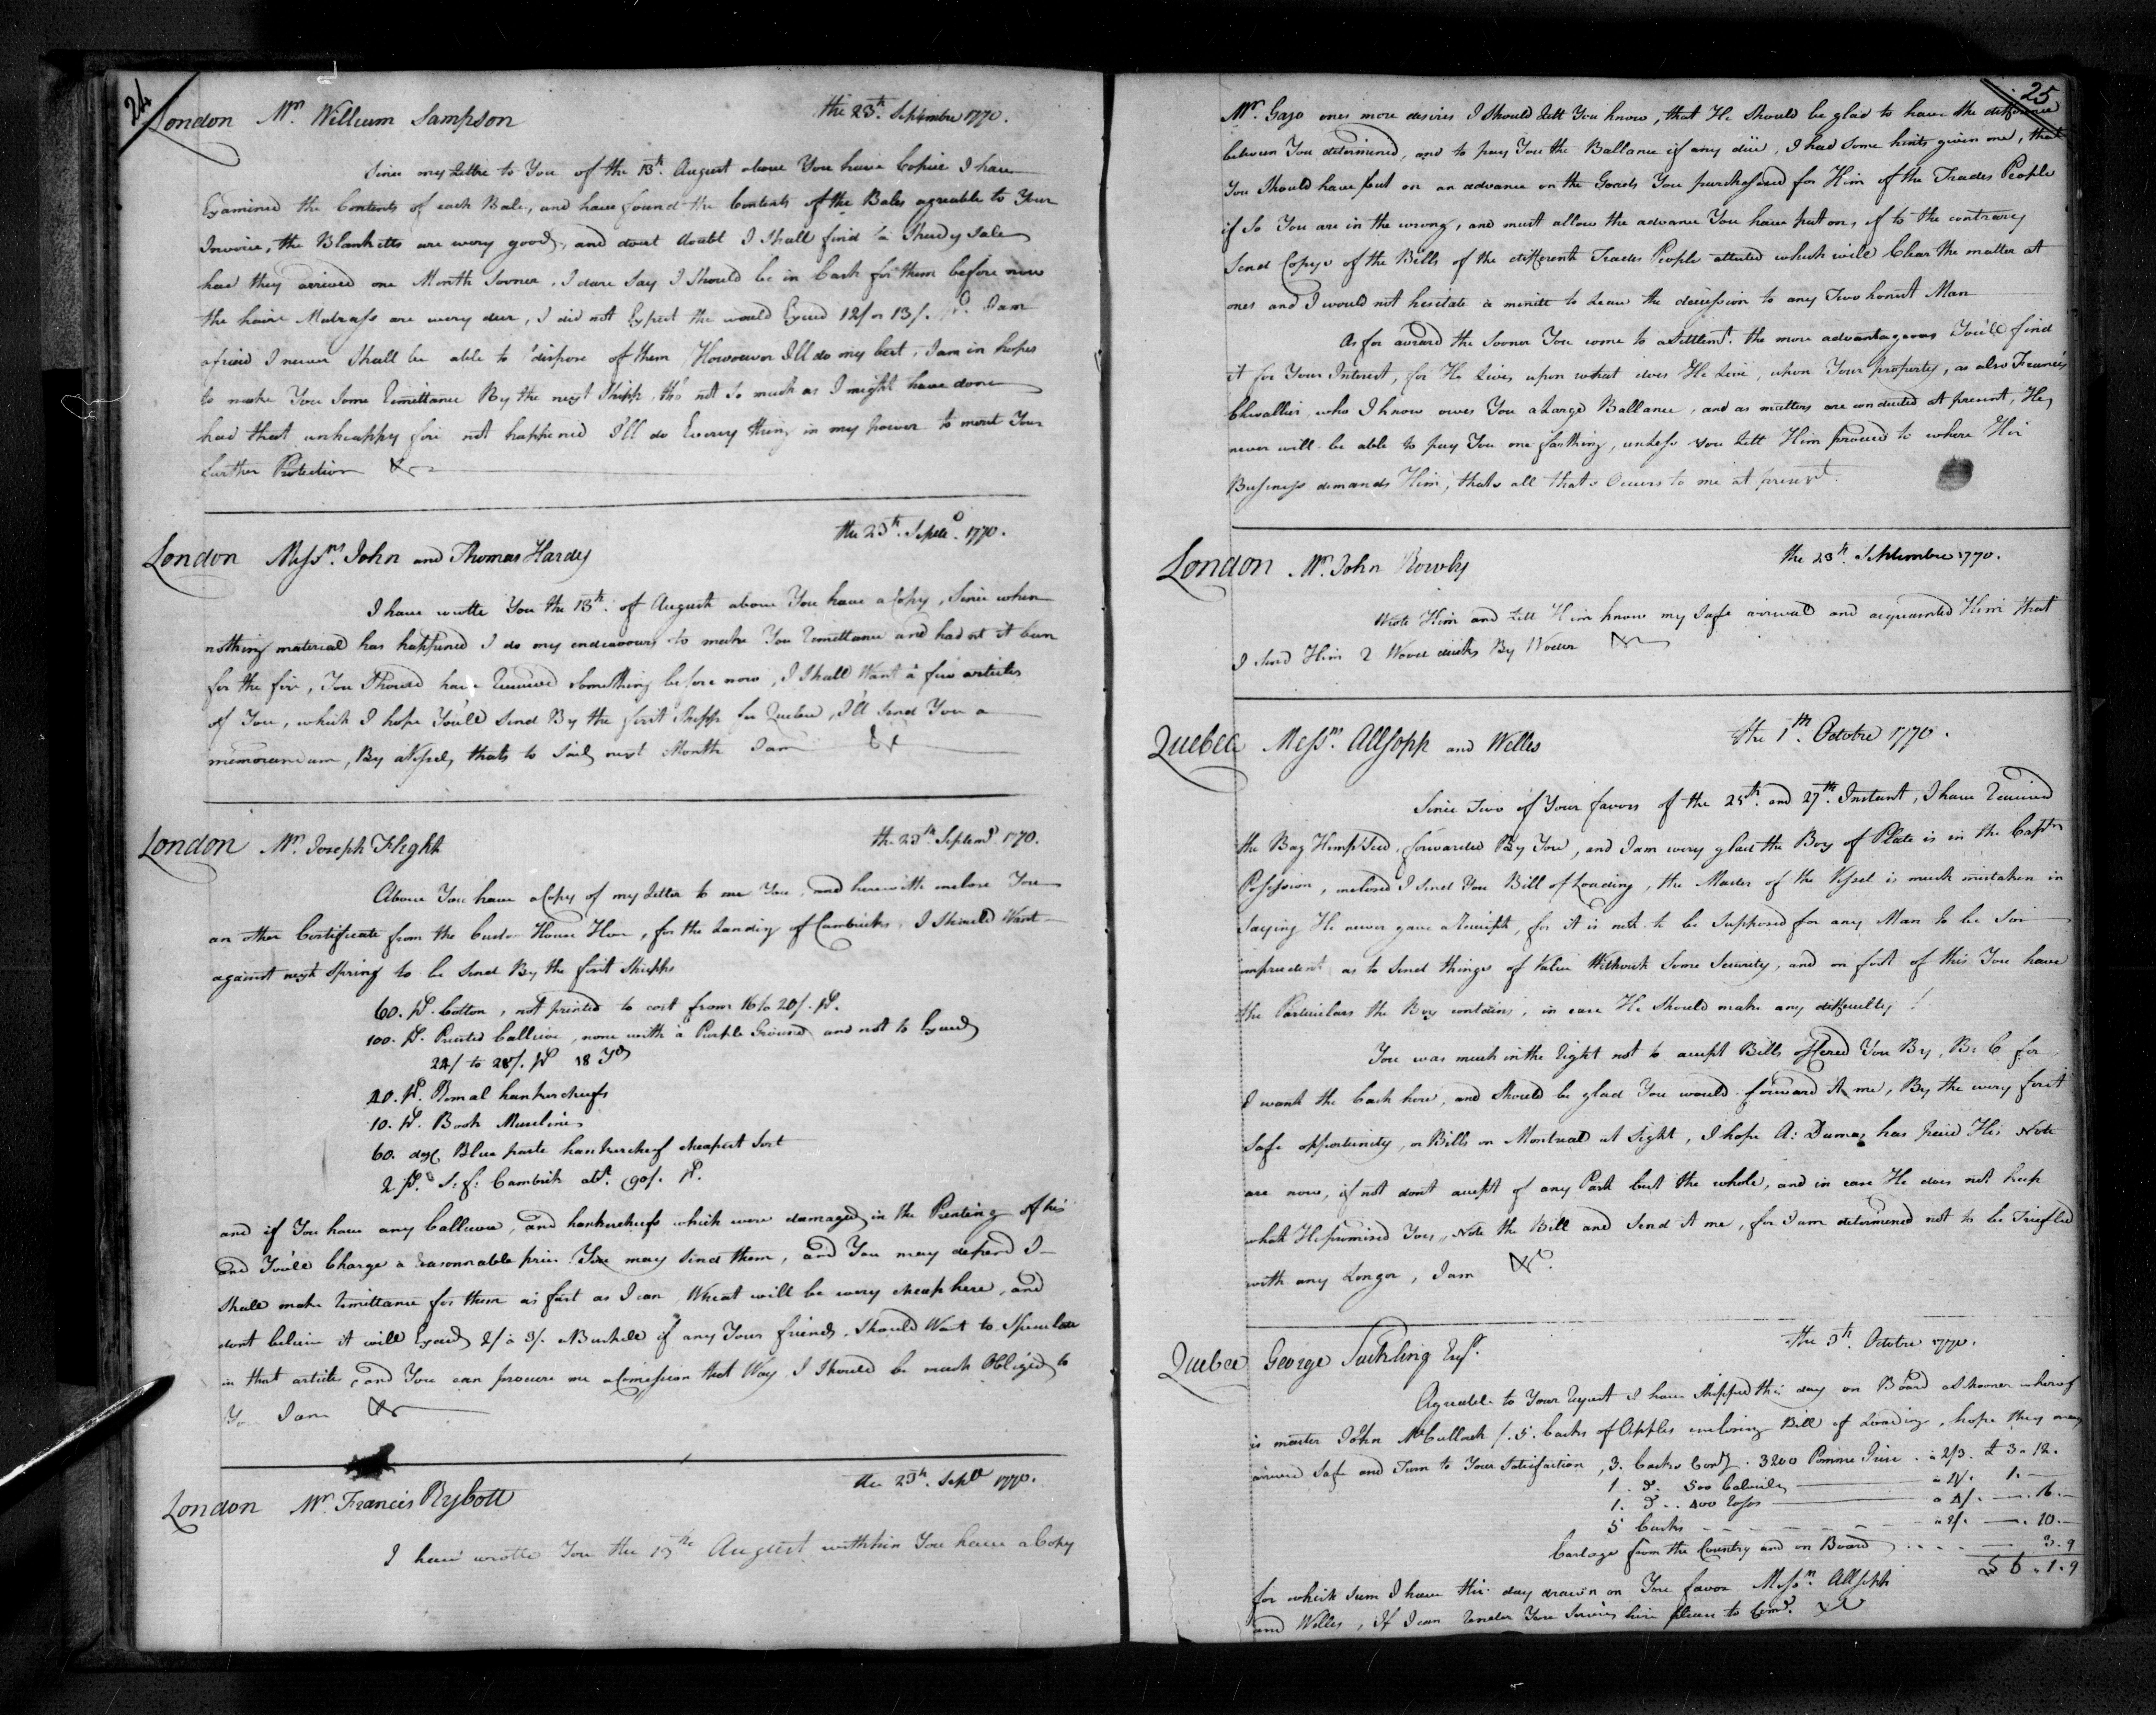 24
London Mr. William Sampson the 23th. Septembre 1770.
Since my Lettre to You of the 13th. August above You have Copie I have
Examined the Contents of each Bale, and have found the Contents of the Bales agreable to Your
Invoice, the Blanketts are wery good, and dout doubt I Shall find a Speedy Sale
had they arrived one Month Sooner, I dare Say I Should be in Cash for them before now
the haire Matrass are wery dear, I did not Expect the would Exceed 12/ or 13/. I am
afraid I never Shall be able to dispose of them Howsoever I'll do my best, I am in hopes
to make You Some Remittance By the next Shipp, tho not So much as I might have done
had that unhappy fire not happened I'll do Every thing in my power to merit Your
further Protection &c
London Messrs. John and Thomas Hardy the 23th. Septe. 1770.
I have wrotte You the 13th. of August above You have a Copy, Since when
nothing material has happened I do my endeavours to make You Remittance and had nt it been
for the fire, You Should have Received Something before now, I Shall Want a few articles
of You, which I hope You'll Send By the first Shipp for Quebec, I'll Send You a
memorandum, By a Vessel, thats to Sail next Month I am &c
London Mr. Joseph Flight the 23th. Septemb 1770.
Above You have a Copy of my Letter to me You, and herewith inclose You
an other Certificate from the Custom House Here, for the Landing of Cambricks, I Should Want
against next Spring to be Send By the first Shipps
60. ps. Cotton, not printed to cost from 16 to 20/. ps.
100. ps. Printed Callicoe, none with a Purple Ground and not to Exceed
24/ to 28/. ps 18 Yds
20. ps. Romal hankercheefs
10. ps. Book Muselines
60. doz. Blue paste hankercheef cheapest Sort
2 ps. S: f: Cambrick abt. 90/. ps.
and if You have any Callicoe, and hankercheefs which were damaged in the Printing of his
and You'll Charge a Reasonnable price You may Send them, and You may depend I
Shall make Remittance for them as fast as I can Wheat will be wery cheap here, and
dont believe it will Exceed 2/ a 3/. a Bushele if any Your friends Should Want to Speculate
in that article, and You can procure me a Comission that Way I Should be much Obliged to
You I am &c
London Mr. Francis Rybott the 23th. Sept 1770.
I have wrotte You the 13th August withhin You have a Copy
25
Mr. Gajo ones more desires I Should Lett You know, that He Should be glad to have the difference
between You determined, and to pay You the Ballance if any düe, I had Some hints given me, that
You Should have put on an advance on the Goods You purchassed for Him of the Trades People
if So You are in the wrong, and must allow the advance You have put on, if to the contrary
Send Copys of the Bills of the differents Trades People attested which will Clear the matter at
ones and I would not hesitate a minitt to Leave the decission to any Two honest Man
As for the Sooner You come to a Settlemt. the more advantageous You'll find
it for Your Interest, for He Lives, upon what does He Live, upon Your property, as also Francois
Chevallier, who I know owes You a Large Ballance, and as matters are conducted at present, He
never will be able to pay You one farthing, unless You Lett Him proceed to where His
Business demands Him, thats all thats Occurs to me at present.
London Mr. John Rowby the 23th. Septembre 1770.
Wrote Him and Lett Him know my Safe arrival and acquainted Him that
I Send Him 2 Wood ducks By &c
Quebec Messrs. Allsopp and Welles the 1th. Octobre 1770.
Since Two of Your favors of the 25th. and 27th. Instant, I have Received
the Bag Hemp Seed, forwarded By You, and I am wery glad the Box of Plate is in the Captns
Possession, inclosed I Send You Bill of Loading, the Master of the Vessel is much mistaken in
Saying He never gave a Receipt, for it is not to be Supposed for any Man to be Soe
imprudent as to Send things of Value Without Some Security, and on foot of this You have
the Particulars the Box contains, in case He Should make any difficulty!
You was much in the Right not to accept Bills offered You By, B: C for
I want the Cash here, and Should be glad You would forward It me, By the wery first
Safe opportunity, or Bills on Montreal at Sight, I hope A: Dumas has paid His Note
are now, if not dont accept of any Part but the whole, and in case He does not keep
what He promised You, Note the Bill and Send It me, for I am determened not to be Triefled
with any Longer, I am &c.
Quebec George Suckling Esqr. the 3th. Octobre 1770.
Agreable to Your Request I have Shipped this day on Board a Schooner whereof
is master John McCullock /. 5. Casks of Apples inclosing Bill of Loading, hope they may
arrived Safe and Turn to Your Satisfaction, 3. Casks Contg. 3200 Pomme Grise . a 2/3. £ 3 " 12.
1. d. 500 Calvile a 4/. 1. —
1. d. 400 a 4/. — . 16. —
5 Casks a 2/. — . 10. —
Cartage from the Country and on Board . . . . 3 . 9
£ 6 . 1 . 9
for which Sum I have this day drawn on You favor Messrs. Allsopp
and Welles, If I can Render You Services here please to Comd. &c